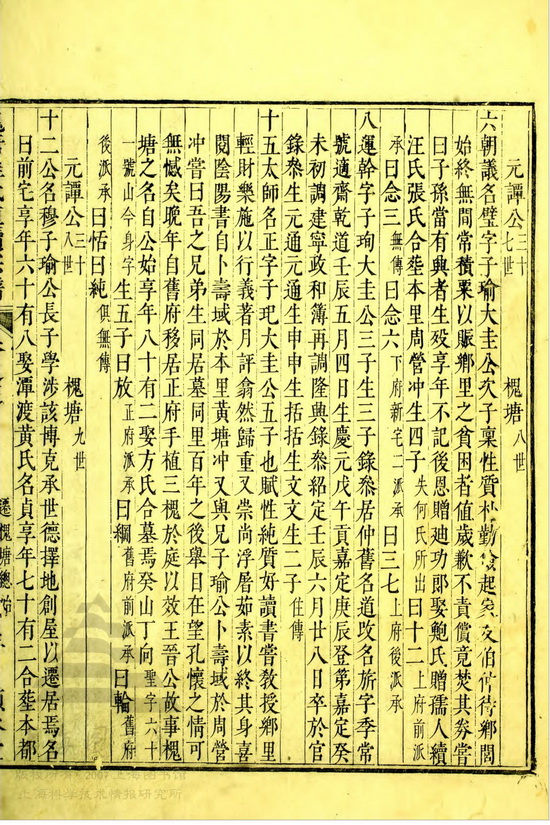 元譚公三十七世　槐塘八世
六朝議名璧字子瑜大圭公次子稟性質朴勤起家友伯仲待鄉閭
始終無間常積粟以賑鄉里之貧困者值歲歉不責償竟焚其券嘗
曰子孫當有興者生殁享年不記後恩贈迪功郎娶鮑氏贈孺人續
汪氏張氏合塟本里周營冲生四子失何氏所出曰十二上府前派
承曰念三無傳曰念六下府新宅二派承曰三七上府後派承
八運幹字子珣大圭公三子生三子錄叅居仲舊名道改名旂字季常
號適齋乾道壬辰五月四日生慶元戊午貢嘉定庚辰登第嘉定癸
未初調建寧政和簿再調隆興錄叅紹定壬辰六月廿八日卒於官
錄叅生元通元通生申申生括括生文文生二子徃傳
十五太師名正字子玘大圭公五子也賦性純質好讀書嘗敎授鄉里
輕財樂施以行義著月評翕然歸重又崇尚浮屠茹素以終其身喜
閱陰陽書自卜壽域於本里黄塘冲又與兄子瑜公卜壽域於周營
冲嘗曰吾之兄弟生同居墓同里百年之後舉目在望孔懷之情可
無憾矣晚年自舊府移居正府手植三槐於庭以效王晉公故事槐
塘之名自公始享年八十有二娶方氏合墓焉癸山丁向聖字六十
一號山今身字生五子曰放正府派承曰綱舊府前派承曰輪舊府
後派承曰恬曰純俱無傳
元譚公三十八世　槐塘九世
十二公名穆子瑜公長子學涉該博克承世德擇地創屋以遷居焉名
曰前宅享年六十有八娶潭渡黄氏名貞享年七十有二合塟本都
遷槐塘總始
上海图书馆
上海科学技术情报研究所